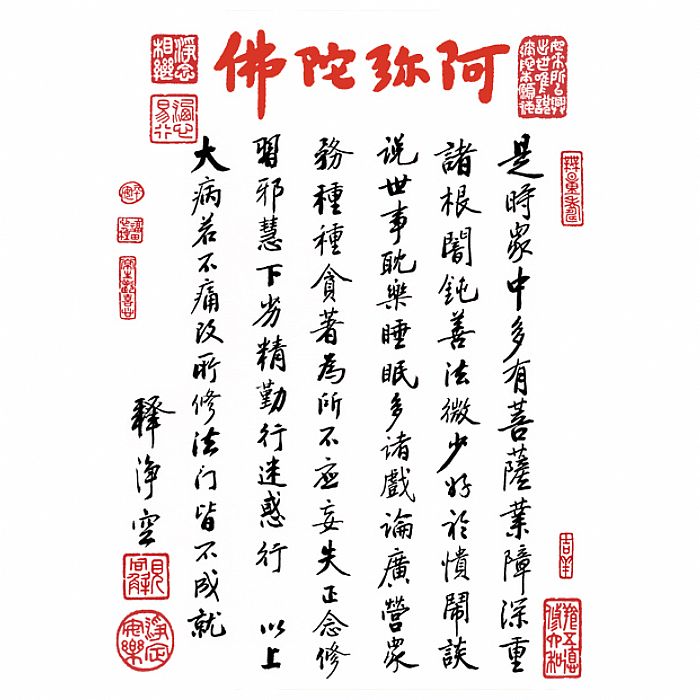 阿弥陀佛
是時眾中多有菩薩業障深重
諸根闇鈍善法微少好於憒鬧談
说世事耽樂睡眠多诸戲論廣營眾
務種種貪著為所不應妄失正念修
習邪慧下劣精勤行迷惑行 以上
大病若不痛改所修法门皆不成就
釋淨空
淨念相繼
無量壽
吉祥